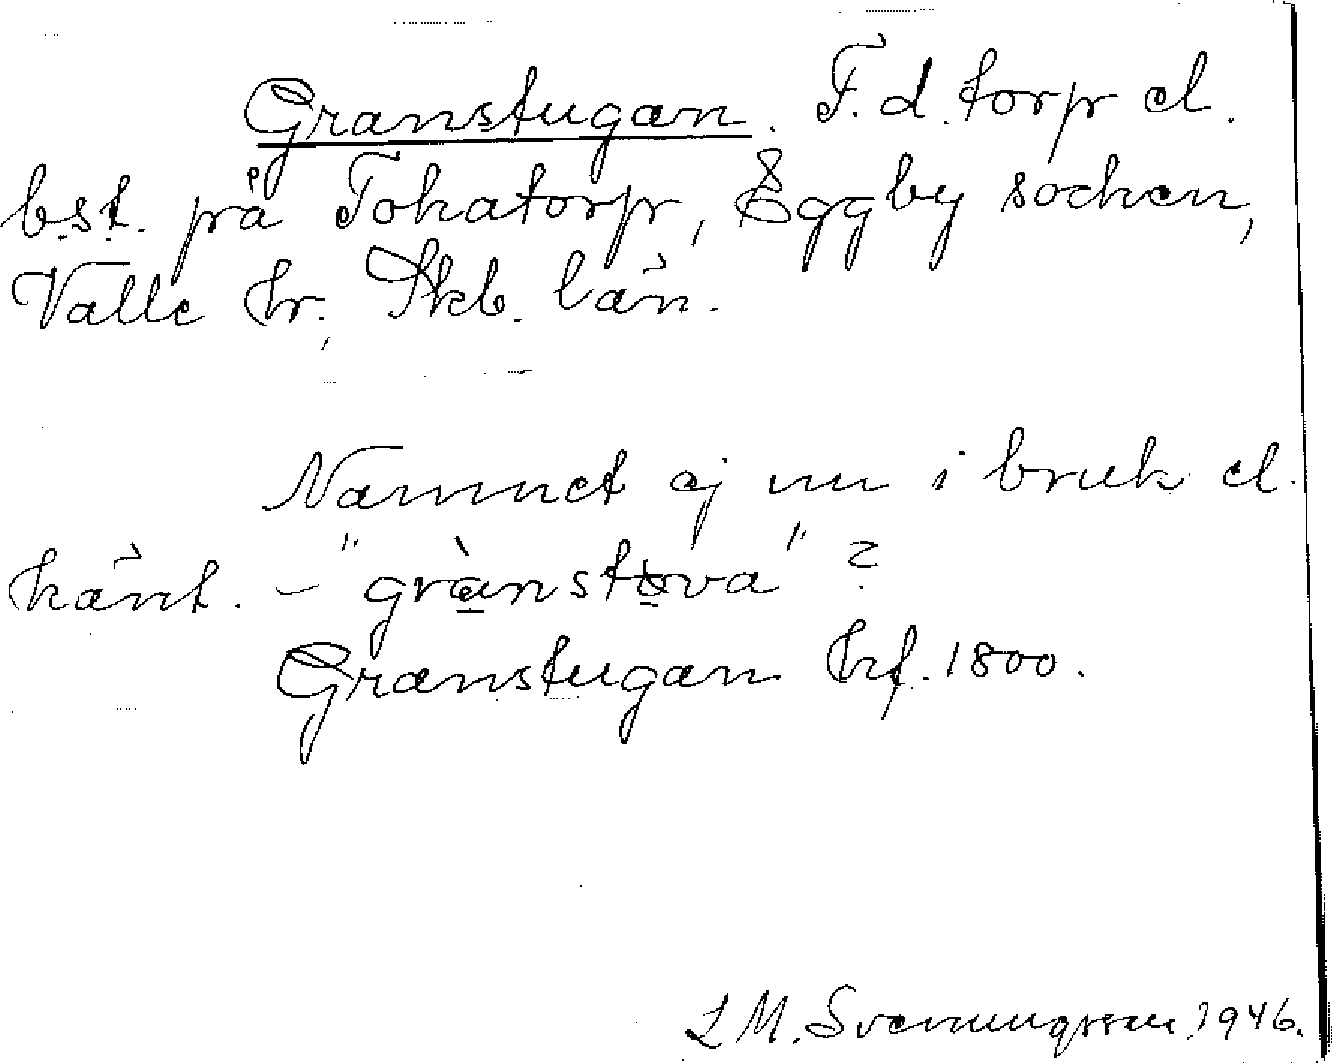 Granstugan. F.d. torp el.
bst. på Tokatorp, Eggby socken,
Valle hr., Skb. län.
Namnet ej nu i bruk el.
känt. – "grànstova" ?
Granstugan hf. 1800.
L M. Svenungsson 1946.